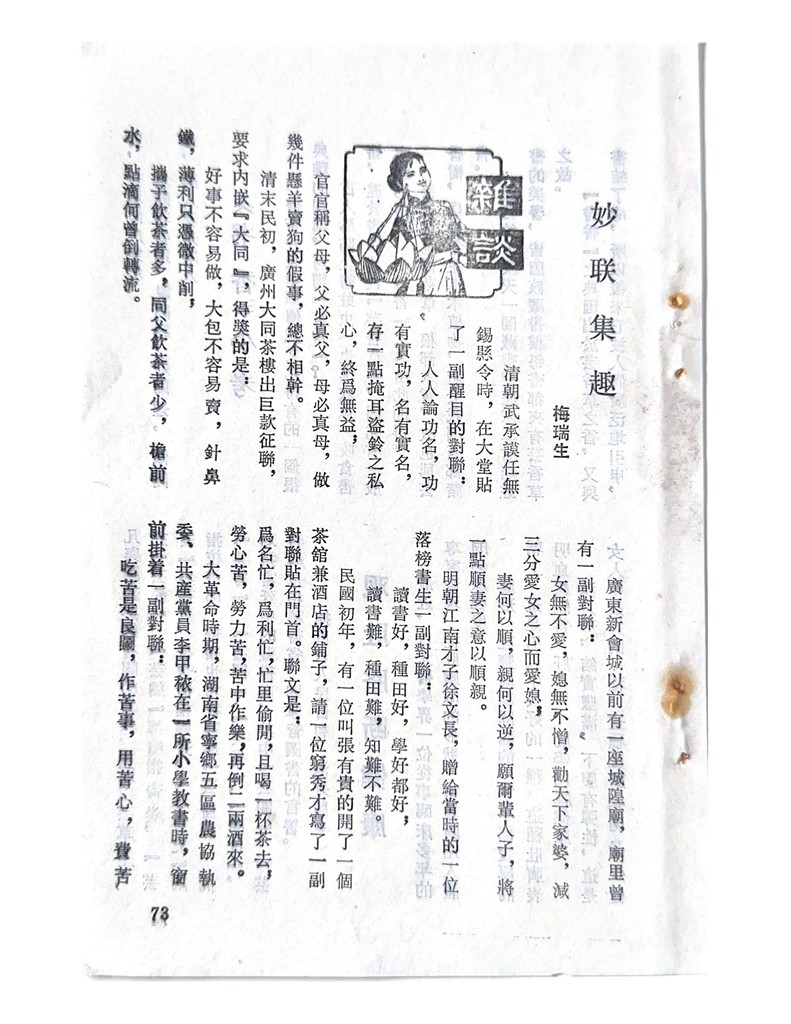 妙联集趣
梅瑞生
雜談
清朝武承謨任無
錫縣令時，在大堂貼
了一副醒目的對聯：
人人論功名，功
有實功，名有實名，
存一點掩耳盜鈴之私
心，終爲無益；
官官稱父母，父必真父，母必真母，做
幾件懸羊賣狗的假事，總不相幹。
清末民初，廣州大同茶樓出巨款征聯，
要求内嵌『大同』，得獎的是：
好事不容易做，大包不容易賣，針鼻
鐵，薄利只憑微中削；
攜子飲茶者多，同父飲茶者少，檐前
水，點滴何曾倒轉流。
廣東新會城以前有一座城隍廟，廟里曾
有一副對聯：
女無不愛，媳無不憎，勸天下家婆，減
三分愛女之心而愛媳；
妻何以順，親何以逆，願爾輩人子，將
一點順妻之意以順親。
明朝江南才子徐文長，贈給當時的一位
落榜書生一副對聯：
讀書好，種田好，學好都好，
讀書難，種田難，知難不難。
民國初年，有一位叫張有貴的開了一個
茶舘兼酒店的鋪子，請一位窮秀才寫了一副
對聯貼在門首。聯文是：
爲名忙，爲利忙，忙里偷閒，且喝一杯茶去；
勞心苦，勞力苦，苦中作樂，再倒二兩酒來。
大革命時期，湖南省寧鄉五區農協執
委、共産黨員李甲秾在一所小學教書時，窗
前掛着一副對聯：
吃苦是良圖，作苦事，用苦心，費苦
73